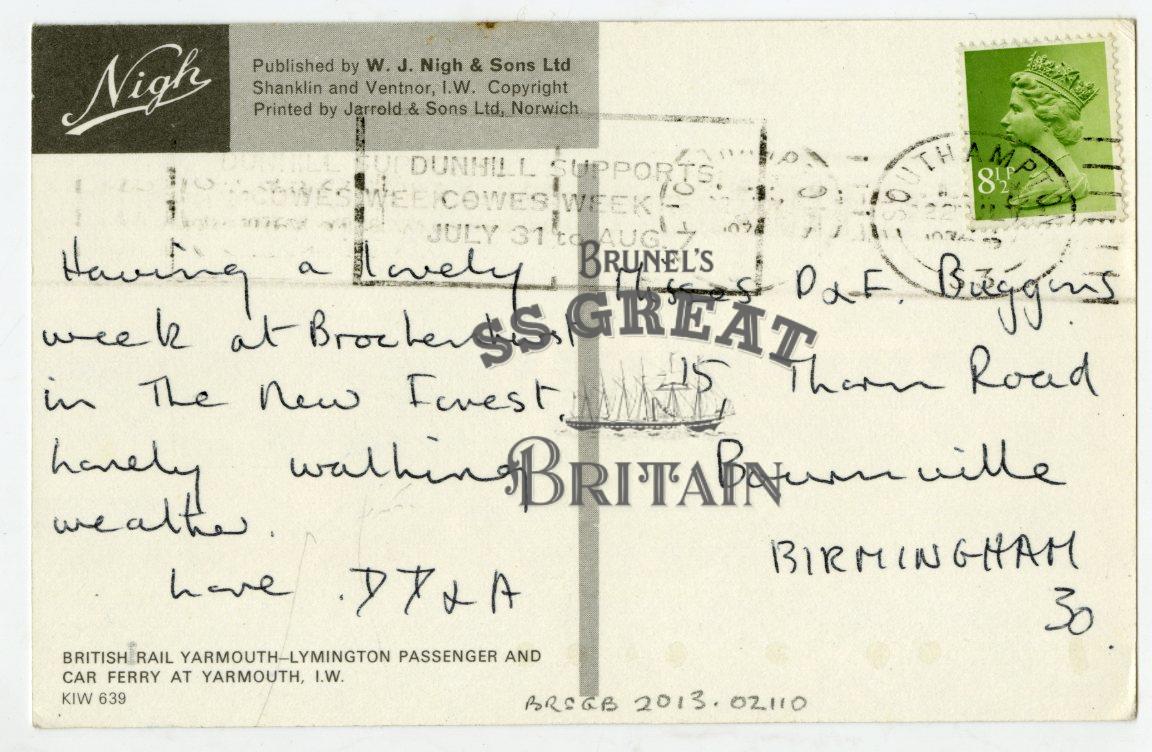 Nigh
Published by W. J. Nigh & Sons Ltd
Shanklin and Ventnor, I.W. Copyright
Printed by Jarrold & Sons Ltd, Norwich
8½P
SOUTHAMPTON
DUNHILL SUPPORTS
COWES WEEK
JULY 31 to AUG. 7
Having a lovely
week at Brockenhurst
in the New Forest.
Lovely walking
weather.
Love DD & A
Misses D & F. Buggins
15 Thorn Road
Bournville
BIRMINGHAM
30.
BRUNEL'S
SS GREAT
BRITAIN
BRITISH RAIL YARMOUTH–LYMINGTON PASSENGER AND
CAR FERRY AT YARMOUTH, I.W.
KIW 639
BRSGB 2013.02110